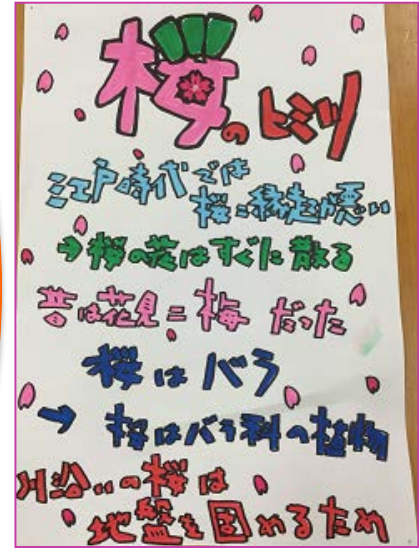 桜のヒミツ
江戸時代では
桜=縁起が悪い
→桜の花はすぐに散る
昔は花見=梅だった
桜はバラ
→桜はバラ科の植物
川沿いの桜は
地盤を固めるため